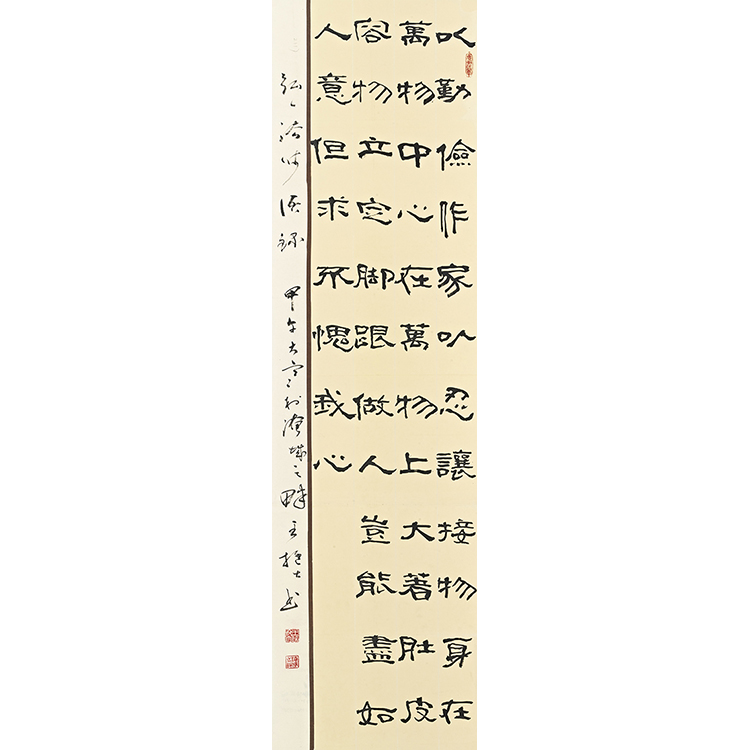 以勤儉作家以忍讓接物身在
萬物中心在萬物上大著肚皮
容物立定脚跟做人豈能盡如
人意但求不愧我心
弘一法師語錄 甲午大寒於淹城之畔